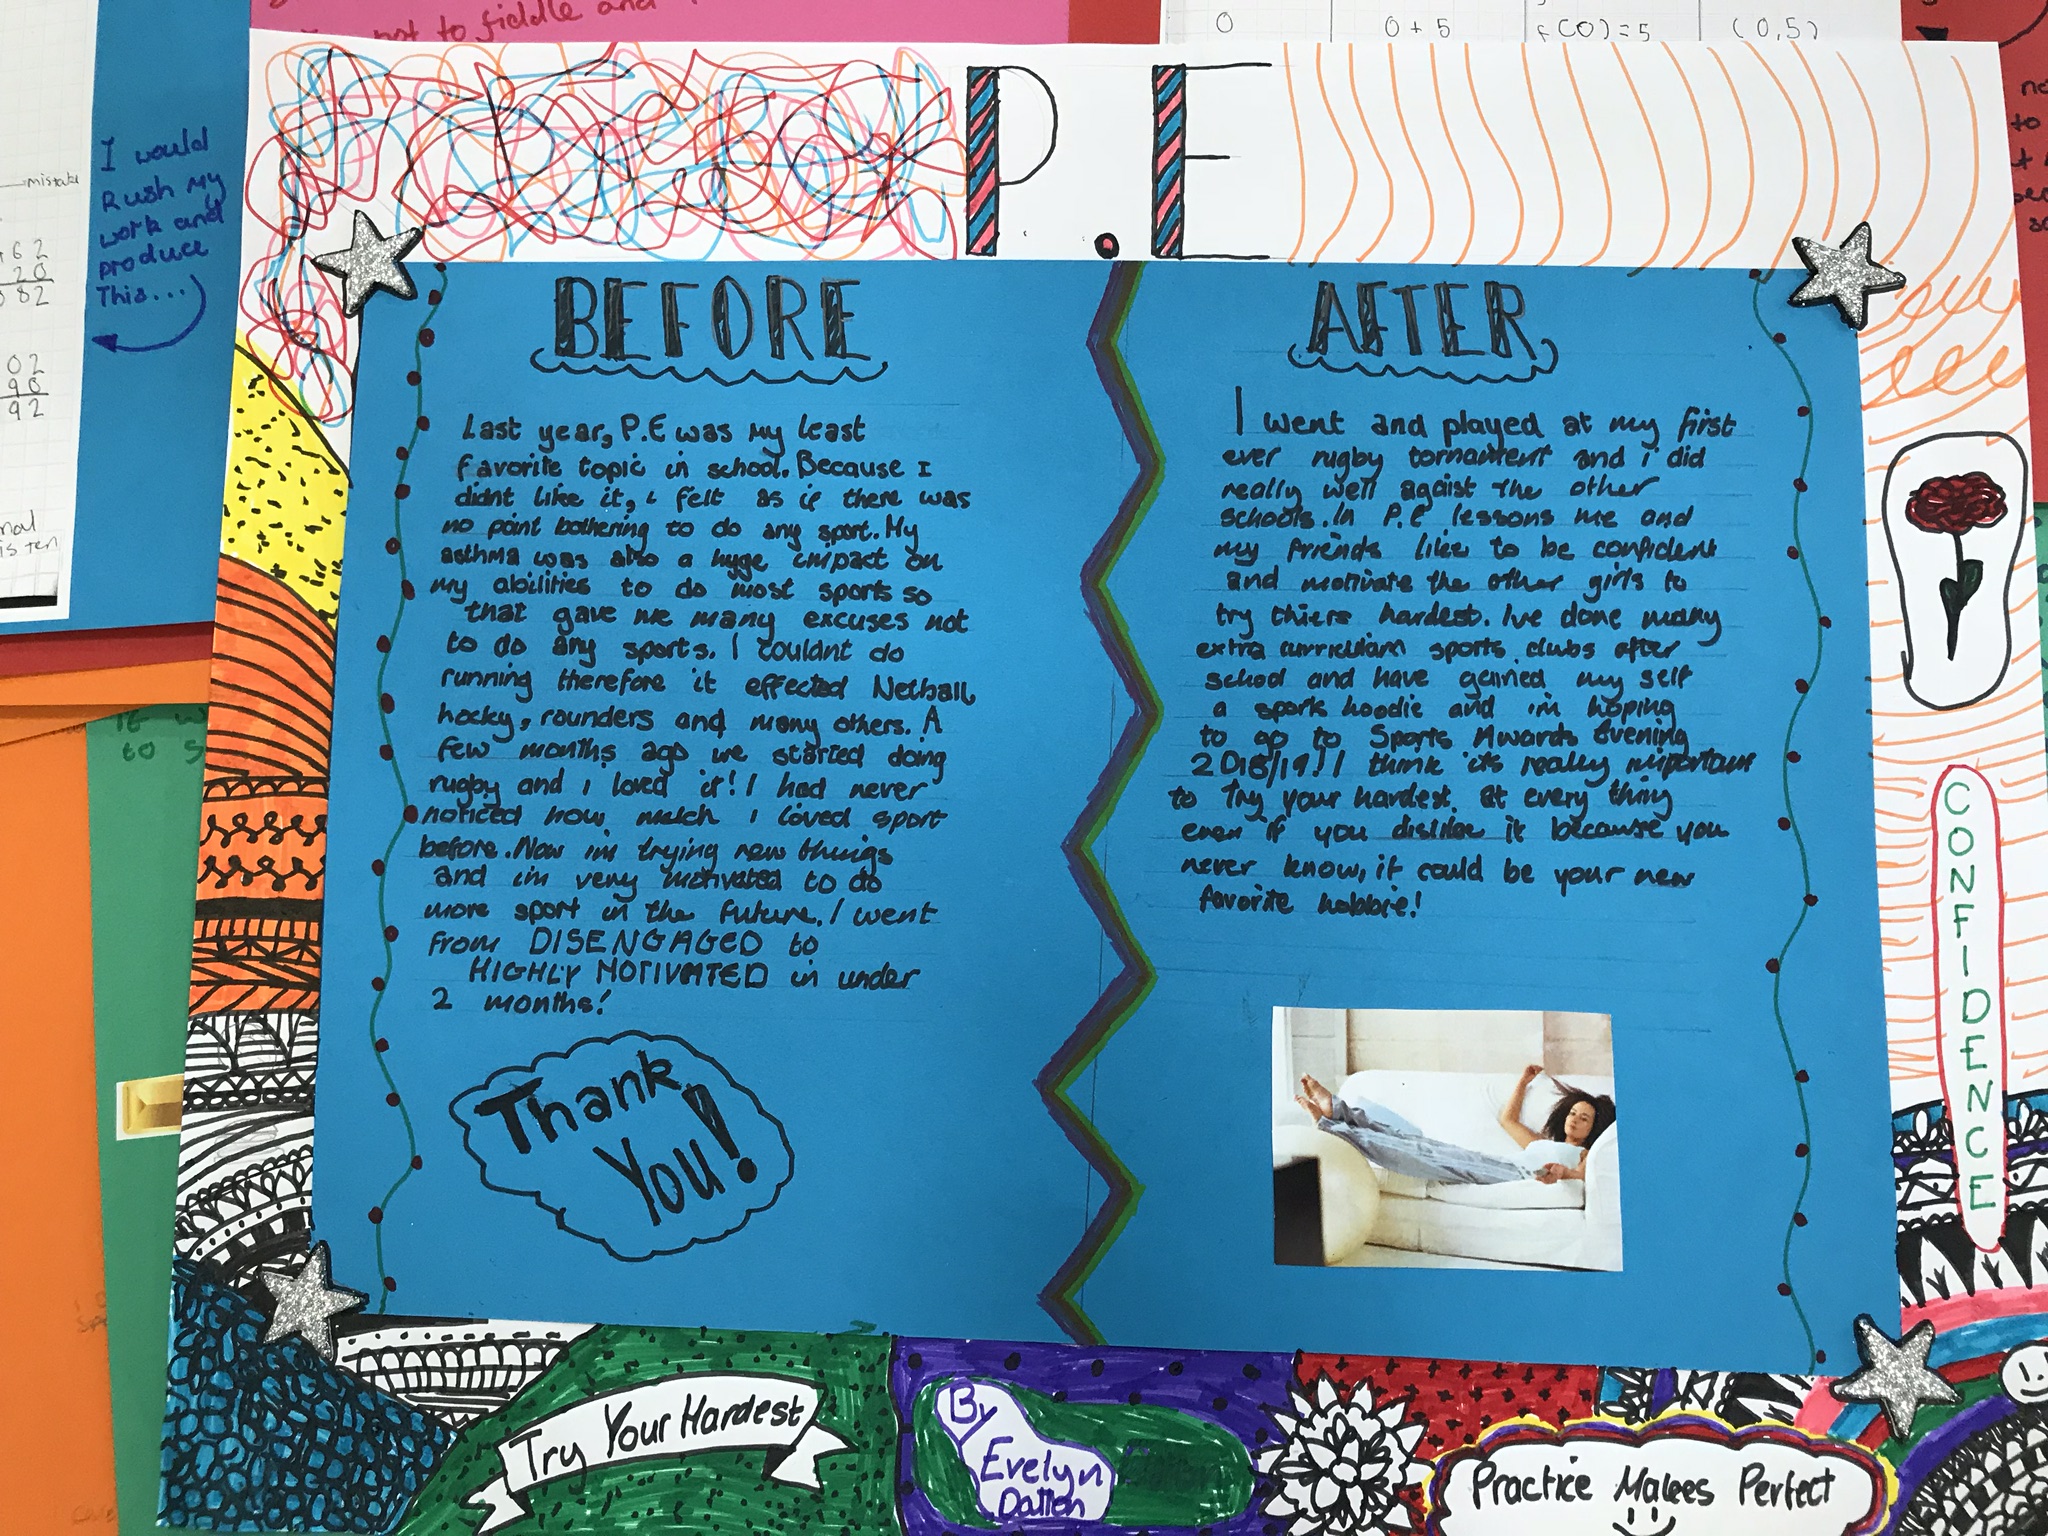 not to fiddle and
0
0 + 5
f(0)=5
(0,5)
I would
Rush My
work and
produce
This...
mistake
62
20
82
02
90
92
P.E
BEFORE
Last year, P.E was my least
favorite topic in school. Because I
didnt like it, i felt as if there was
no point bothering to do any sport. My
asthma was also a huge impact on
my abilities to do most sports so
that gave me many excuses not
to do any sports. I couldnt do
running therefore it effected Netball
hocky, rounders and many others. A
few months ago we started doing
rugby and i loved it! I had never
noticed how much i loved sport
before. Now im trying new things
and im very motivated to do
more sport in the future. I went
from DISENGAGED to
HIGHLY MOTIVATED in under
2 months!
Thank
You!
AFTER
I went and played at my first
ever rugby tornament and i did
really well agaist the other
schools. In P.E lessons me and
my friends like to be confident
and motivate the other girls to
try thiere hardest. Ive done many
extra curriculam sports clubs after
school and have gained my self
a sports hoodie and im hoping
to go to Sports Awards Evening
2018/19! I think its really important
to try your hardest at every thing
even if you dislike it because you
never know, it could be your new
favorite hobbie!
CONFIDENCE
Try Your Hardest
By
Evelyn
Practice Makes Perfect